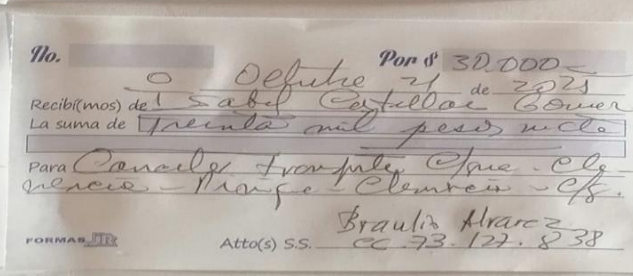 No. Por $ 30.000=
Octubre 21 de 2021
Recibí(mos) de Isabel Castellar Gomez
La suma de Treinta mil pesos mcte
Para Cancelar transporte
Clemencia - C/g.
Braulio Alvarez
FORMAS JR Atto(s) S.S. CC. 73.127.838